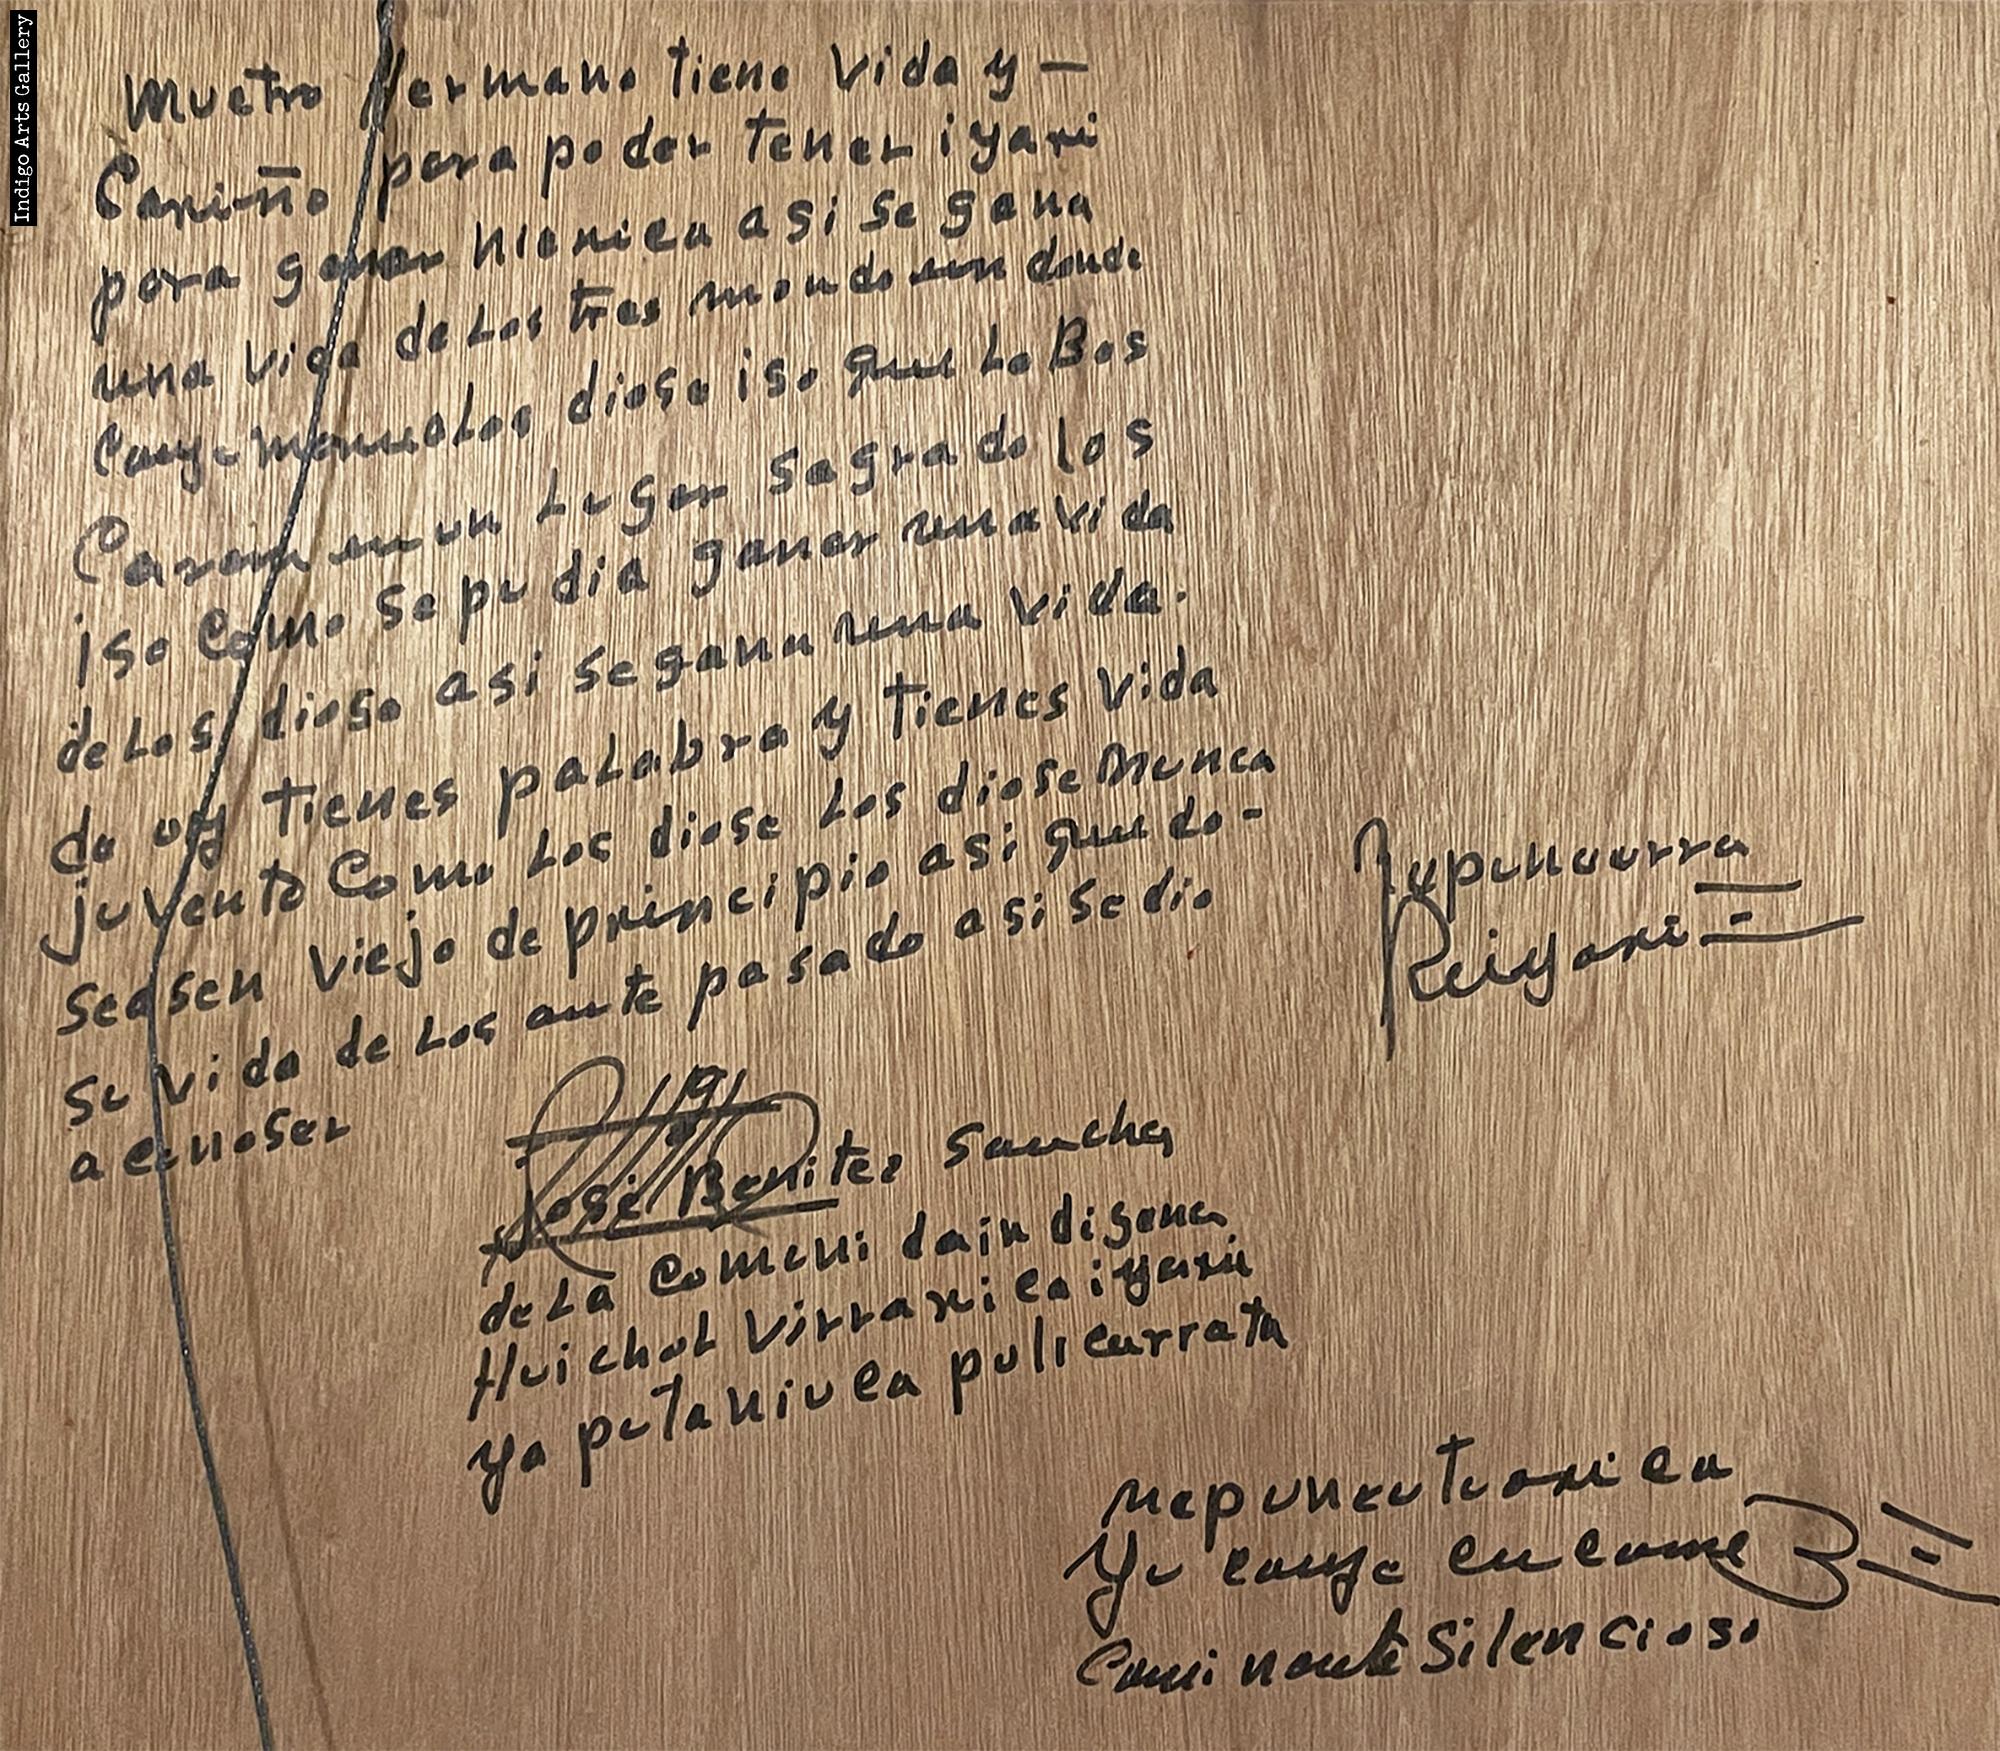 Indigo Arts Gallery
muetro Hermano tieno vida y —
Cariño para poder tener iyari
para ganar nienica asi se gana
una vida de Los tres mondo en donde
Cauyemanua Los diose iso que Lo Bos
Caron en un Lugar sagrado los
iso como se pudia ganar una vida
de Los diose asi se gana una vida.
do oy tienes paLabra y tienes vida
juvento Como Los diose Los diose nunca
seasen viejo de principio asi que do-
su vida de Los ante pasado asi se dio
a conoser
José Benites Sanches
de La Comoni da in digena
HuichoL virrarica iyari
ya putaniuca puli currata
Yucauye cucame
Caminante Silencioso